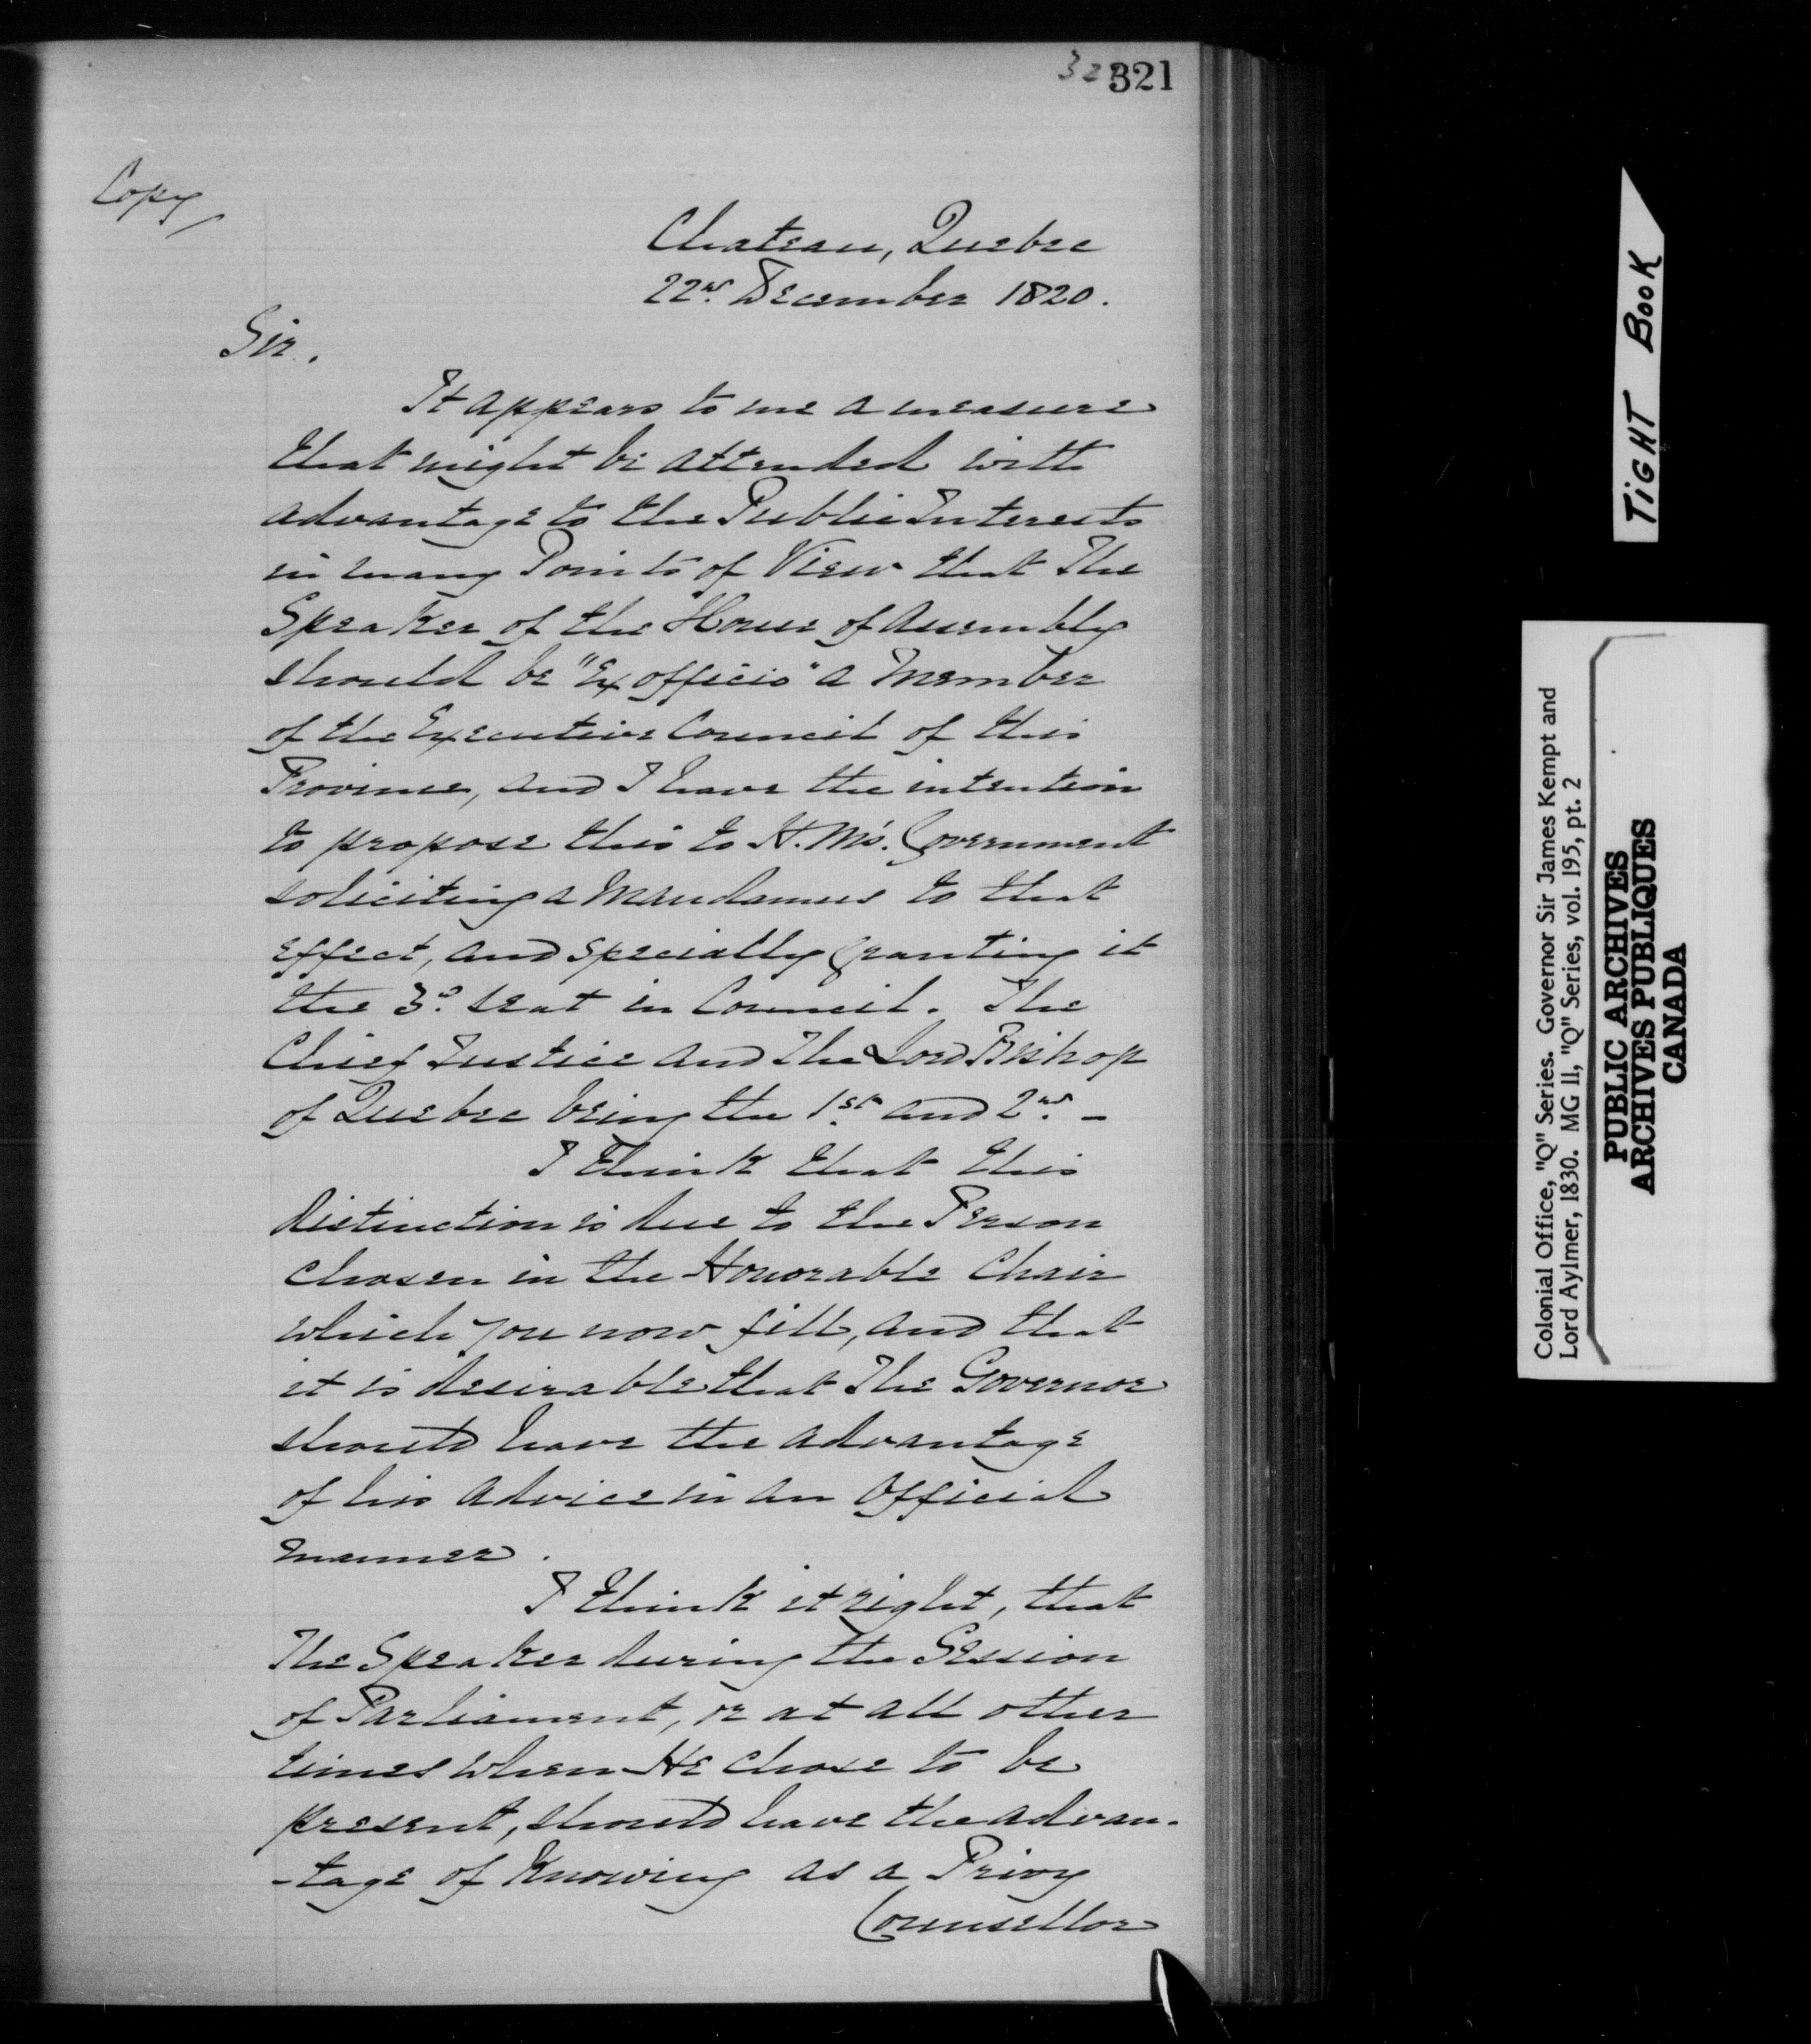 321
Copy
Chateau, Quebec
22nd. December 1820.
Sir.
It appears to me a measure
that might be attended with
advantage to the Public Interests
in many Points of View that The
Speaker of the House of Assembly
should be "Ex officio" a Member
of the Executive Council of this
Province, and I have the intention
to propose this to H. M's. Government
soliciting a Mandamus to that
effect, and specially granting it
the 3d. seat in Council. The
Chief Justice and The Lord Bishop
of Quebec being the 1st. and 2nd. -
I think that this
distinction is due to the Person
chosen in the Honorable Chair
which you now fill, and that
it is desirable that The Governor
should have the advantage
of his advice in an Official
manner.
I think it right, that
The Speaker during the Session
of Parliament, or at all other
times when He chose to be
present, should have the advan-
-tage of Knowing as a Privy
Counsellor
TIGHT BOOK
Colonial Office, "Q" Series. Governor Sir James Kempt and
Lord Aylmer, 1830. MG 11, "Q" Series, vol. 195, pt. 2
PUBLIC ARCHIVES
ARCHIVES PUBLIQUES
CANADA